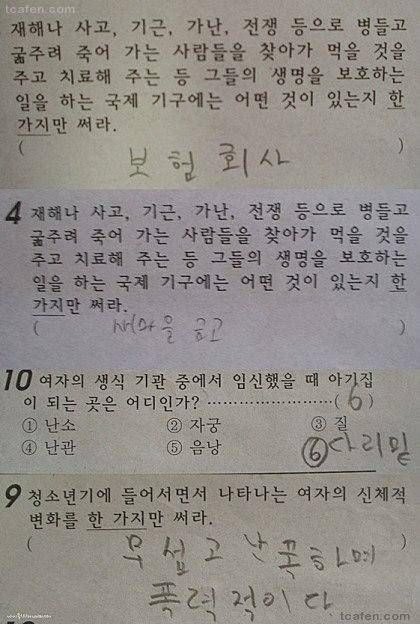 tcafen.com
재해나 사고, 기근, 가난, 전쟁 등으로 병들고
굶주려 죽어 가는 사람들을 찾아가 먹을 것을
주고 치료해 주는 등 그들의 생명을 보호하는
일을 하는 국제 기구에는 어떤 것이 있는지 한
가지만 써라.
( 보험회사 )
4 재해나 사고, 기근, 가난, 전쟁 등으로 병들고
굶주려 죽어 가는 사람들을 찾아가 먹을 것을
주고 치료해 주는 등 그들의 생명을 보호하는
일을 하는 국제 기구에는 어떤 것이 있는지 한
가지만 써라.
( 새마을 금고 )
10 여자의 생식 기관 중에서 임신했을 때 아기집
이 되는 곳은 어디인가? ……………………( 6 )
① 난소 ② 자궁 ③ 질
④ 난관 ⑤ 음낭 ⑥ 다리밑
9 청소년기에 들어서면서 나타나는 여자의 신체적
변화를 한 가지만 써라.
( 무섭고 난폭하며 )
폭력적이다
tcafen.com